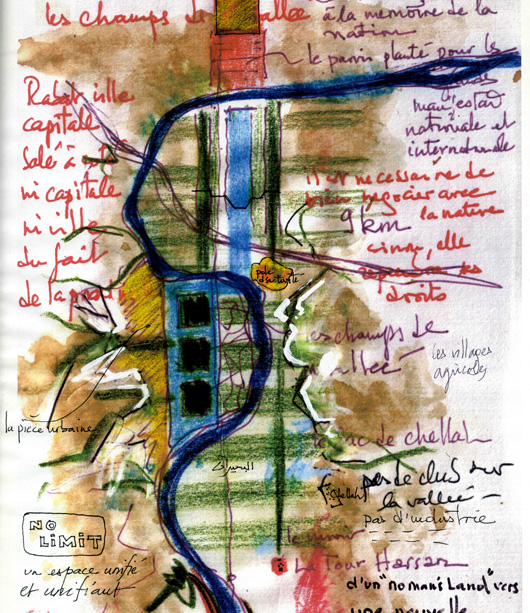 les champs de vallée à la memoire de la
nation
le parvis planté pour les
nationale et
internationale
Rabat ville
capitale
Salé
ni capitale
ni ville
du fait
de la
il est nécessaire de
bien negocier avec
la nature
9 km
sinon, elle
ses
droits
pole
les champs de
vallée
les villages
agricoles
la pièce urbaine
lac de chellah
chellah
pas de clubs sur
la vallée -
pas d'industrie
NO
LIMIT
un espace unifié
et unifiant
La Tour Hassan
d'un "no man's Land" vers
une nouvelle